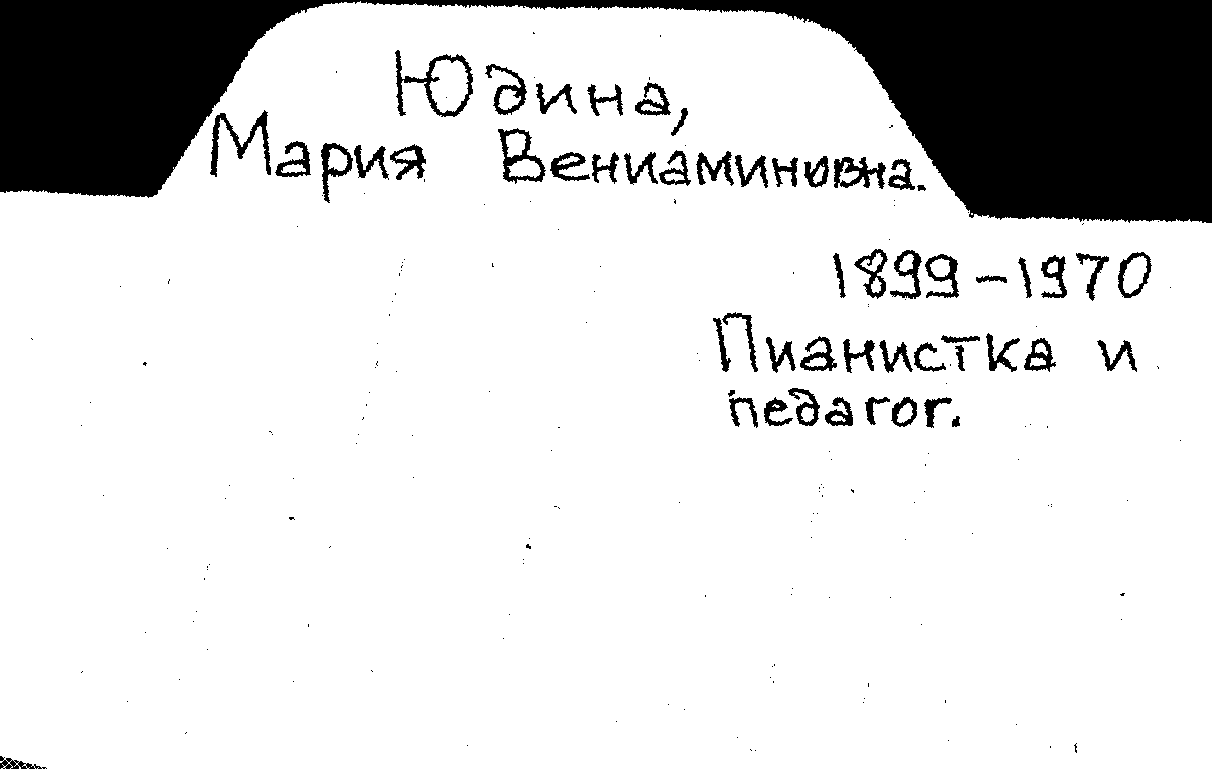 Юдина,
Мария Вениаминовна.
1899-1970
Пианистка и
педагог.